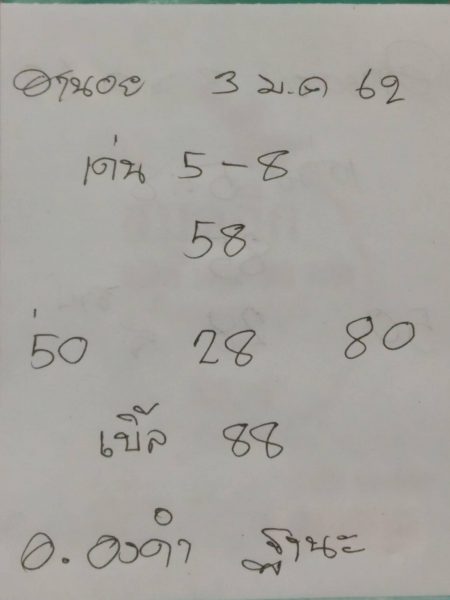 ฮานอย 3 ม.ค 62
เด่น 5-8
58
50 28 80
เบิ้ล 88
อ. องดำ ฐานะ